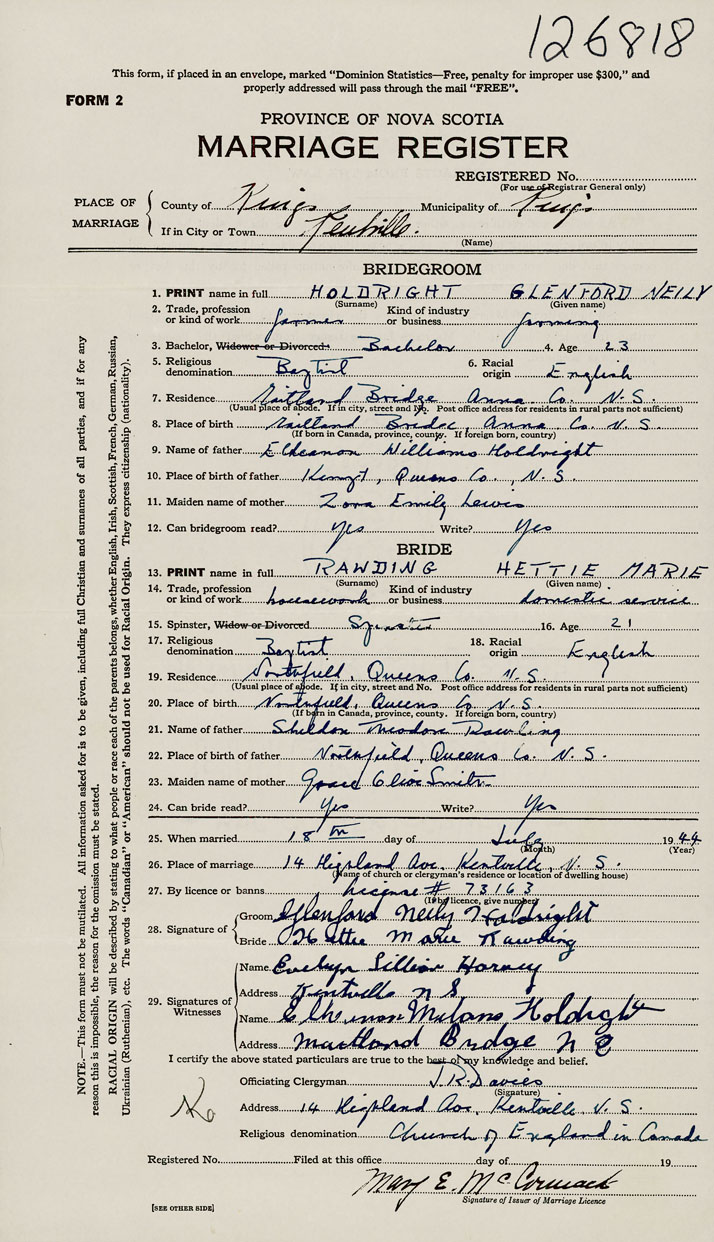 126818
This form, if placed in an envelope, marked “Dominion Statistics—Free, penalty for improper use $300,” and
properly addressed will pass through the mail “FREE”.
FORM 2
PROVINCE OF NOVA SCOTIA
MARRIAGE REGISTER
REGISTERED No.
(For use of Registrar General only)
PLACE OF MARRIAGE
County of Kings Municipality of Kings
If in City or Town Kentville.
(Name)
BRIDEGROOM
1. PRINT name in full HOLDRIGHT GLENFORD NEILY
(Surname) (Given name)
2. Trade, profession or kind of work farmer Kind of industry or business farming
3. Bachelor, Widower or Divorced. Bachelor 4. Age 23
5. Religious denomination Baptist 6. Racial origin English
7. Residence Maitland Bridge Anna Co. N. S.
(Usual place of abode. If in city, street and No. Post office address for residents in rural parts not sufficient)
8. Place of birth Maitland Bridge, Anna Co. N. S.
(If born in Canada, province, county. If foreign born, country)
9. Name of father Williams Holdright
10. Place of birth of father Kempt, Queens Co., N. S.
11. Maiden name of mother Zora Emily Lewis
12. Can bridegroom read? Yes Write? Yes
BRIDE
13. PRINT name in full RAWDING HETTIE MARIE
(Surname) (Given name)
14. Trade, profession or kind of work housework Kind of industry or business domestic service
15. Spinster, Widow or Divorced Spinster 16. Age 21
17. Religious denomination Baptist 18. Racial origin English
19. Residence Northfield, Queens Co. N. S.
(Usual place of abode. If in city, street and No. Post office address for residents in rural parts not sufficient)
20. Place of birth Northfield, Queens Co. N. S.
(If born in Canada, province, county. If foreign born, country)
21. Name of father Sheldon Theodore Rawding
22. Place of birth of father Northfield, Queens Co. N. S.
23. Maiden name of mother Grace Olive Smith
24. Can bride read? Yes Write? Yes
25. When married 18th day of July 1944
(Month) (Year)
26. Place of marriage 14 Highland Ave. Kentville, N. S.
(Name of church or clergyman's residence or location of dwelling house)
27. By licence or banns license # 73163
(If by licence, give number)
28. Signature of
Groom Glenford Neily Holdright
Bride Hettie Marie Rawding
29. Signatures of Witnesses
Name Evelyn Lillian Harvey
Address Kentville N S
Name Holdright
Address Maitland Bridge N S
I certify the above stated particulars are true to the best of my knowledge and belief.
Officiating Clergyman J. R. Davies
(Signature)
Address 14 Highland Ave, Kentville N. S.
Religious denomination Church of England in Canada
Registered No. Filed at this office day of 19
Mary E. McCormack
Signature of Issuer of Marriage Licence
[SEE OTHER SIDE]
NOTE.—This form must not be mutilated. All information asked for is to be given, including full Christian and surnames of all parties, and if for any
reason this is impossible, the reason for the omission must be stated.
RACIAL ORIGIN will be described by stating to what people or race each of the parents belongs, whether English, Irish, Scottish, French, German, Russian,
Ukrainian (Ruthenian), etc. The words “Canadian” or “American” should not be used for Racial Origin. They express citizenship (nationality).